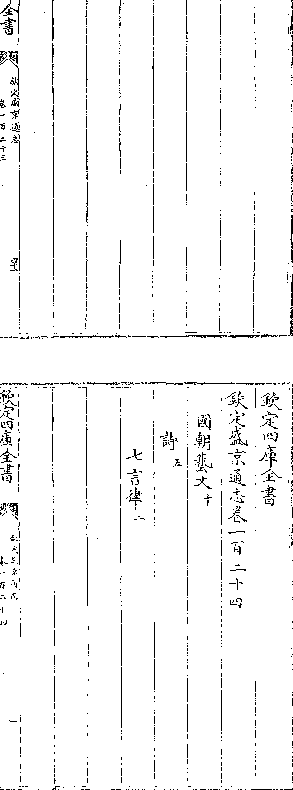 全書
欽定盛京通志
卷一百二十三
欽定四庫全書
欽定盛京通志卷一百二十四
國朝藝文十
詩五
七言律二
欽定四庫全書
欽定盛京通志
卷一百二十四
一